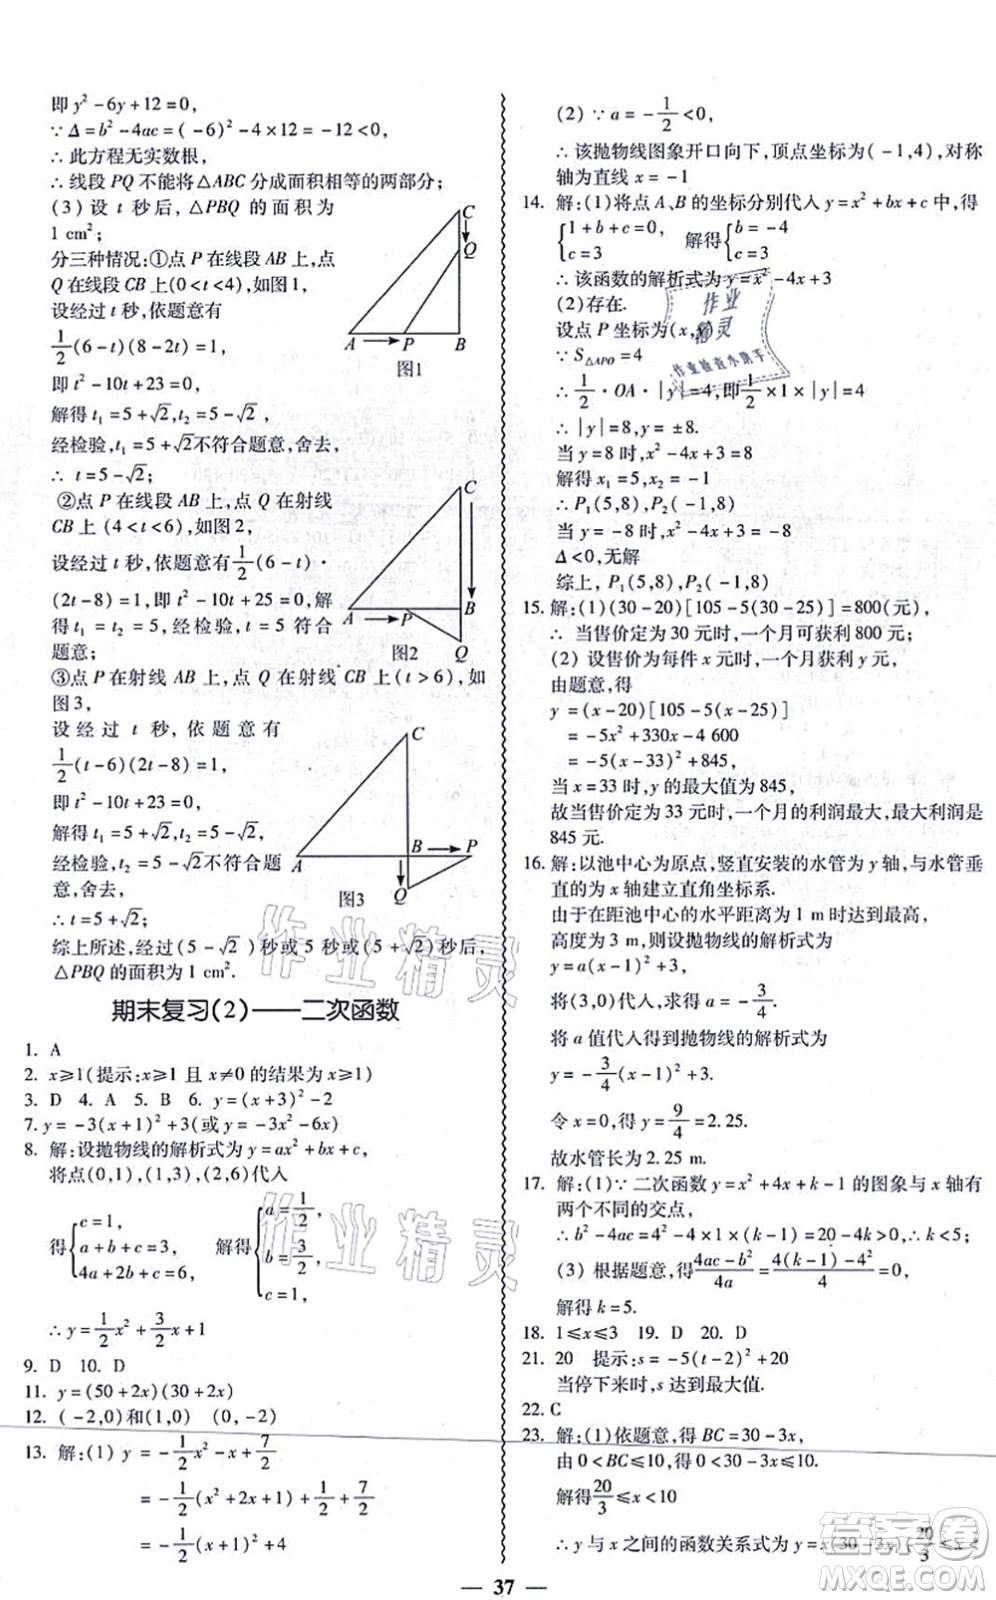 即 y²-6y+12=0,
∵Δ=b²-4ac=(-6)²-4×12=-12<0,
∴此方程无实数根,
∴线段 PQ 不能将△ABC 分成面积相等的两部分;
(3) 设 t 秒后, △PBQ 的面积为
1 cm²;
分三种情况:①点 P 在线段 AB 上,点
Q 在线段 CB 上(0<t<4),如图1,
设经过 t 秒,依题意有
1/2(6-t)(8-2t)=1,
即 t²-10t+23=0,
解得 t₁=5+√2,t₂=5-√2,
经检验,t₁=5+√2不符合题意,舍去,
∴ t=5-√2;
C
Q
A P B
图1
②点 P 在线段 AB 上,点 Q 在射线
CB 上 (4<t<6),如图2,
设经过 t 秒,依题意有1/2(6-t)·
(2t-8)=1,即 t²-10t+25=0,解
得 t₁=t₂=5,经检验,t=5 符合
题意;
C
A P B
Q
图2
③点 P 在射线 AB 上,点 Q 在射线 CB 上(t>6),如
图3,
设 经 过 t 秒, 依 题 意 有
1/2(t-6)(2t-8)=1,
即 t²-10t+23=0,
解得 t₁=5+√2,t₂=5-√2,
经检验,t₂=5-√2不符合题
意,舍去,
∴t=5+√2;
C
A B P
Q
图3
综上所述,经过(5-√2)秒或 5 秒或(5+√2)秒后,
△PBQ 的面积为 1 cm².
期末复习(2)——二次函数
1. A
2. x≥1(提示:x≥1 且 x≠0 的结果为 x≥1)
3. D 4. A 5. B 6. y=(x+3)²-2
7. y=-3(x+1)²+3(或 y=-3x²-6x)
8. 解:设抛物线的解析式为 y=ax²+bx+c,
将点(0,1),(1,3),(2,6)代入
得{c=1, a+b+c=3, 4a+2b+c=6, 解得{a=1/2, b=3/2, c=1,
∴y=1/2x²+3/2x+1
9. D 10. D
11. y=(50+2x)(30+2x)
12. (-2,0)和(1,0) (0,-2)
13. 解:(1) y=-1/2x²-x+7/2
=-1/2(x²+2x+1)+1/2+7/2
=-1/2(x+1)²+4
(2) ∵a=-1/2<0,
∴该抛物线图象开口向下,顶点坐标为(-1,4),对称
轴为直线 x=-1
14. 解:(1)将点 A、B 的坐标分别代入 y=x²+bx+c 中,得
{1+b+c=0 c=3 解得{b=-4 c=3
∴该函数的解析式为 y=x²-4x+3
(2)存在.
设点 P 坐标为(x,y)
∵S△APO=4
∴1/2·OA·|y|=4,即1/2×1×|y|=4
∴|y|=8,y=±8.
当 y=8 时,x²-4x+3=8
解得 x₁=5,x₂=-1
∴P₁(5,8),P₂(-1,8)
当 y=-8 时,x²-4x+3=-8
Δ<0,无解
综上, P₁(5,8),P₂(-1,8)
15. 解:(1)(30-20)[105-5(30-25)]=800(元),
∴ 当售价定为 30 元时,一个月可获利 800 元;
(2) 设售价为每件 x 元时,一个月的获利 y 元,
由题意,得
y=(x-20)[105-5(x-25)]
=-5x²+330x-4 600
=-5(x-33)²+845,
当 x=33 时,y 的最大值为 845,
故当售价定为 33 元时,一个月的利润最大,最大利润是
845 元.
16. 解:以池中心为原点,竖直安装的水管为 y 轴,与水管垂
直的为 x 轴建立直角坐标系.
由于在距池中心的水平距离为 1 m时达到最高,
高度为 3 m,则设抛物线的解析式为
y=a(x-1)²+3,
将(3,0)代入,求得 a=-3/4.
将 a 值代入得到抛物线的解析式为
y=-3/4(x-1)²+3.
令 x=0,得 y=9/4=2.25.
故水管长为 2.25 m.
17. 解:(1)∵二次函数 y=x²+4x+k-1 的图象与 x 轴有
两个不同的交点,
∴b²-4ac=4²-4×1×(k-1)=20-4k>0,∴k<5;
(3) 根据题意,得(4ac-b²)/4a=(4(k-1)-4²)/4=0,
解得 k=5.
18. 1≤x≤3 19. D 20. D
21. 20 提示:s=-5(t-2)²+20
当停下来时,s 达到最大值.
22. C
23. 解:(1)依题意,得 BC=30-3x,
由 0<BC≤10,得 0<30-3x≤10.
解得20/3≤x<10
∴y 与 x 之间的函数关系式为 y=x(30-3x)(20/3≤x<
— 37 —
作业精灵
作业检查小助手
作业精灵
作业精灵
答案圈
MXQE.COM